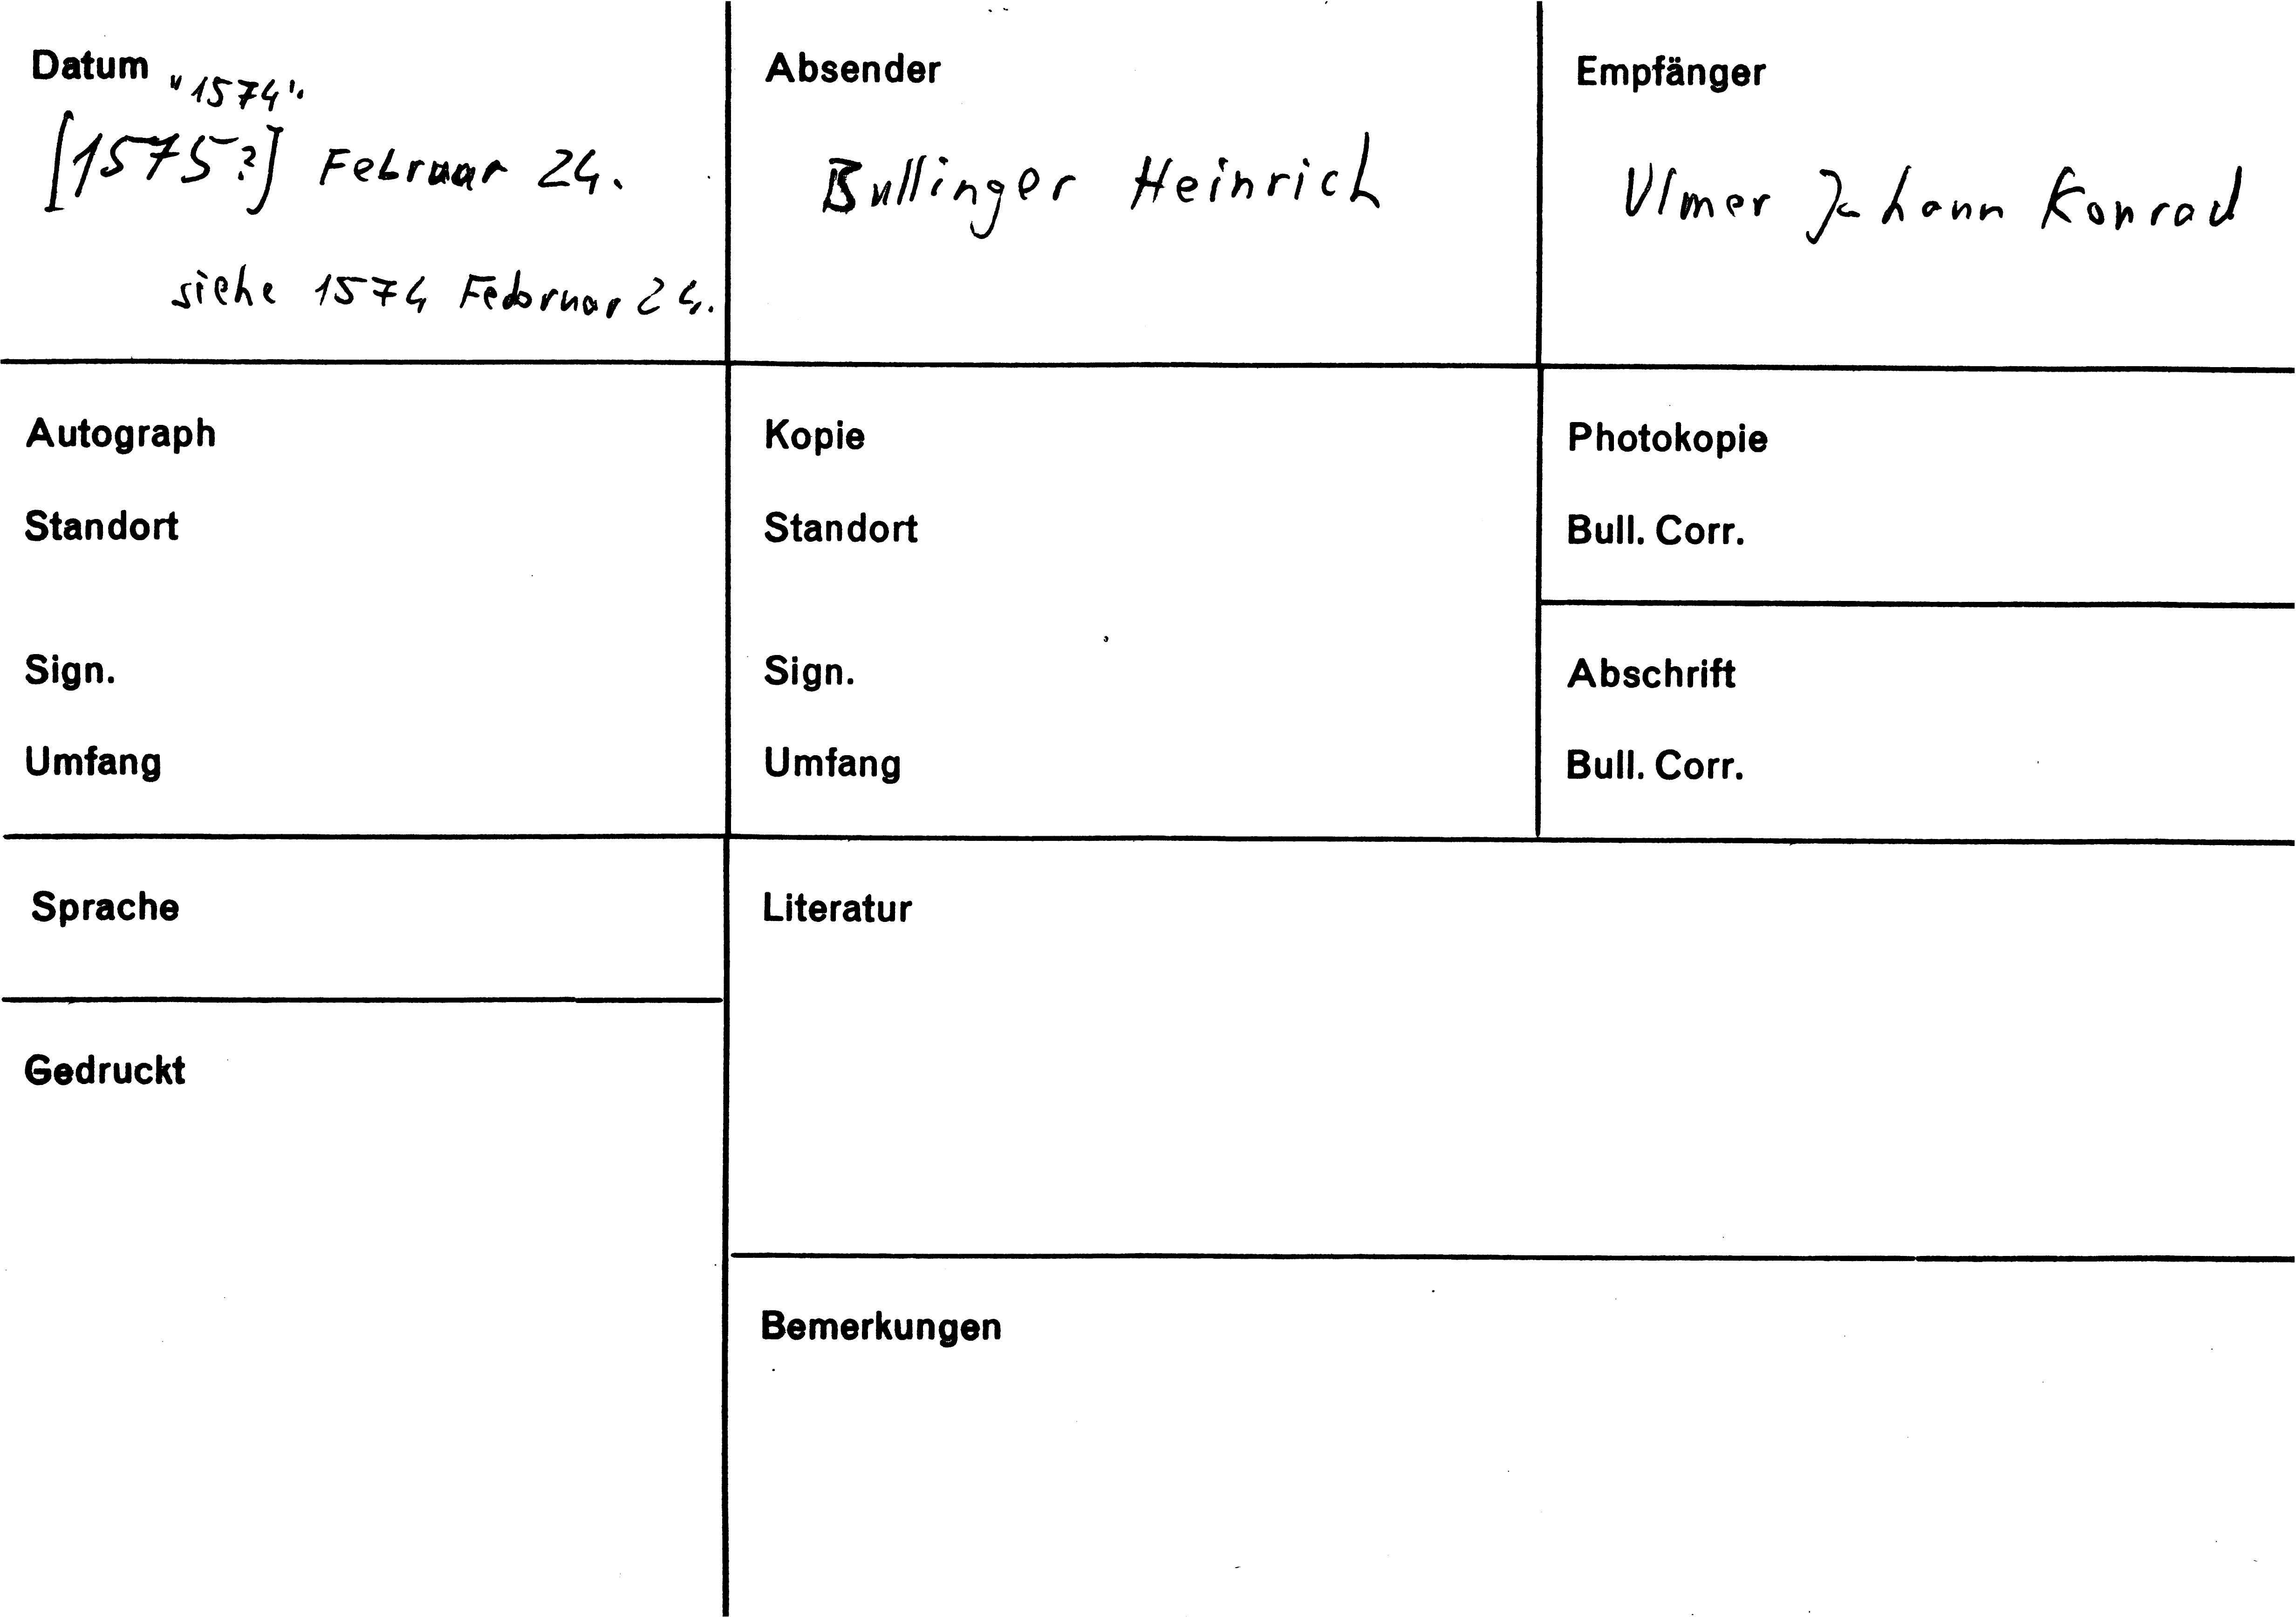 Datum "1574".
[1575?] Februar 24.
siehe 1574 Februar 24.
Absender
Bullinger Heinrich
Empfänger
Ulmer Johann Konrad
Autograph
Standort
Sign.
Umfang
Kopie
Standort
Sign.
Umfang
Photokopie
Bull. Corr.
Abschrift
Bull. Corr.
Sprache
Gedruckt
Literatur
Bemerkungen